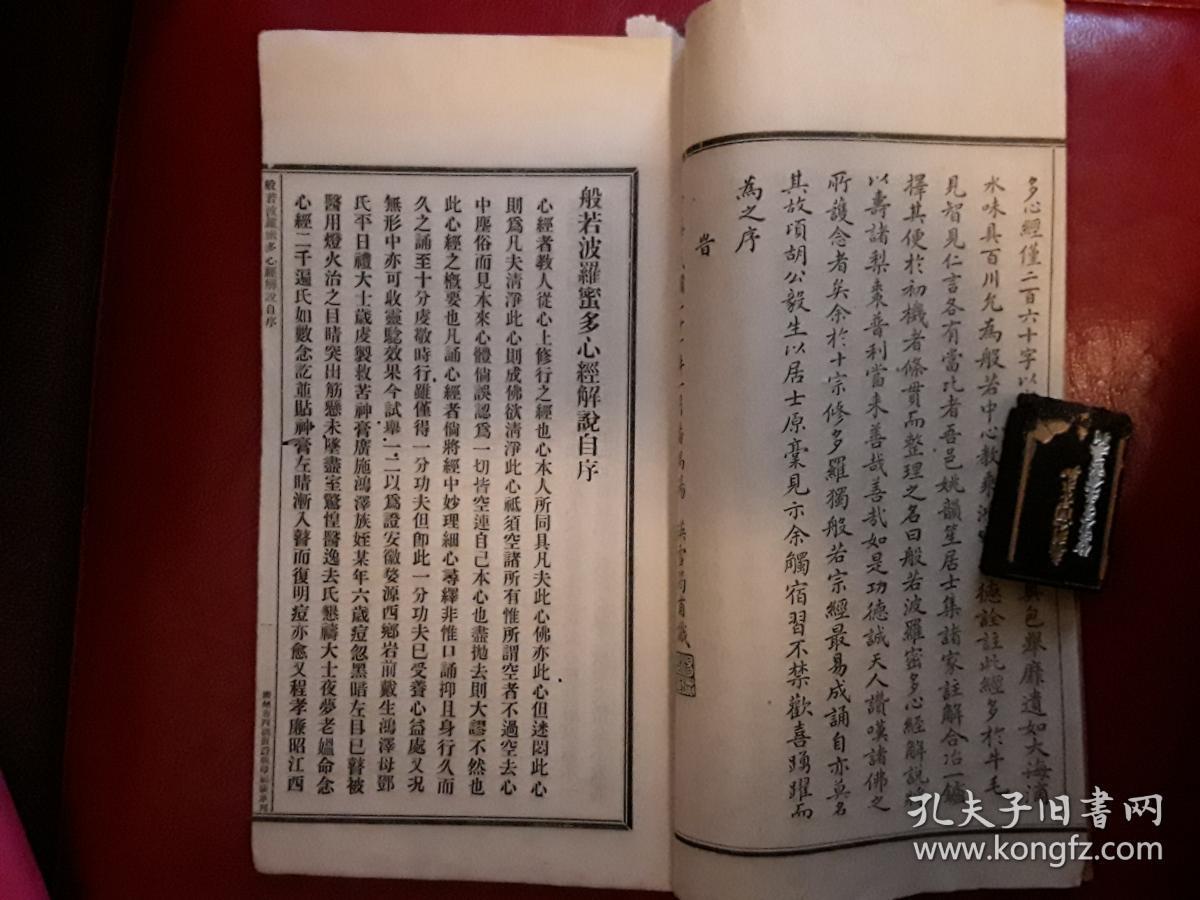 多心經僅二百六十字以
包舉靡遺如大海滴
水味具百川允為般若中心教乘
德詮註此經多於牛毛
見智見仁言各有當比者吾邑姚韻笙居士集諸家註解合冶一爐
擇其便於初機者條貫而整理之名曰般若波羅蜜多心經解說
以壽諸梨棗普利當來善哉善哉如是功德誠天人讚嘆諸佛之
所護念者矣余於十宗修多羅獨般若宗經最易成誦自亦莫名
其故項胡公毅生以居士原稾見示余觸宿習不禁歡喜踴躍而
為之序
旹
般若波羅蜜多心經解說自序
心經者教人從心上修行之經也心本人所同具凡夫此心佛亦此心但迷悶此心
則爲凡夫清淨此心則成佛欲清淨此心祗須空諸所有惟所謂空者不過空去心
中塵俗而見本來心體倘誤認爲一切皆空連自己本心也盡拋去則大謬不然也
此心經之概要也凡誦心經者倘將經中妙理細心尋繹非惟口誦抑且身行久而
久之誦至十分虔敬時行雖僅得一分功夫但卽此一分功夫已受養心益處又況
無形中亦可收靈驗效果今試舉一二以爲證安徽婺源西鄉岩前戴生鴻澤母鄧
氏平日禮大士歲虔製救苦神膏廣施鴻澤族姪某年六歲痘忽黑暗左目已瞽被
醫用燈火治之目睛突出筋懸未墜盡室驚惶醫逸去氏懇禱大士夜夢老媼命念
心經二千遍氏如數念訖並貼神膏左睛漸入瞽而復明痘亦愈又程孝廉昭江西
般若波羅蜜多心經解說自序
孔夫子旧书网
www.kongfz.com